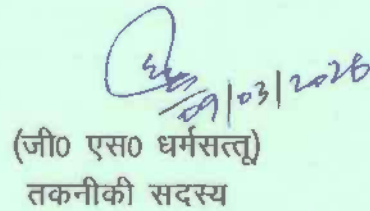 09/03/2026
(जी0 एस0 धर्मसत्तू)
तकनीकी सदस्य